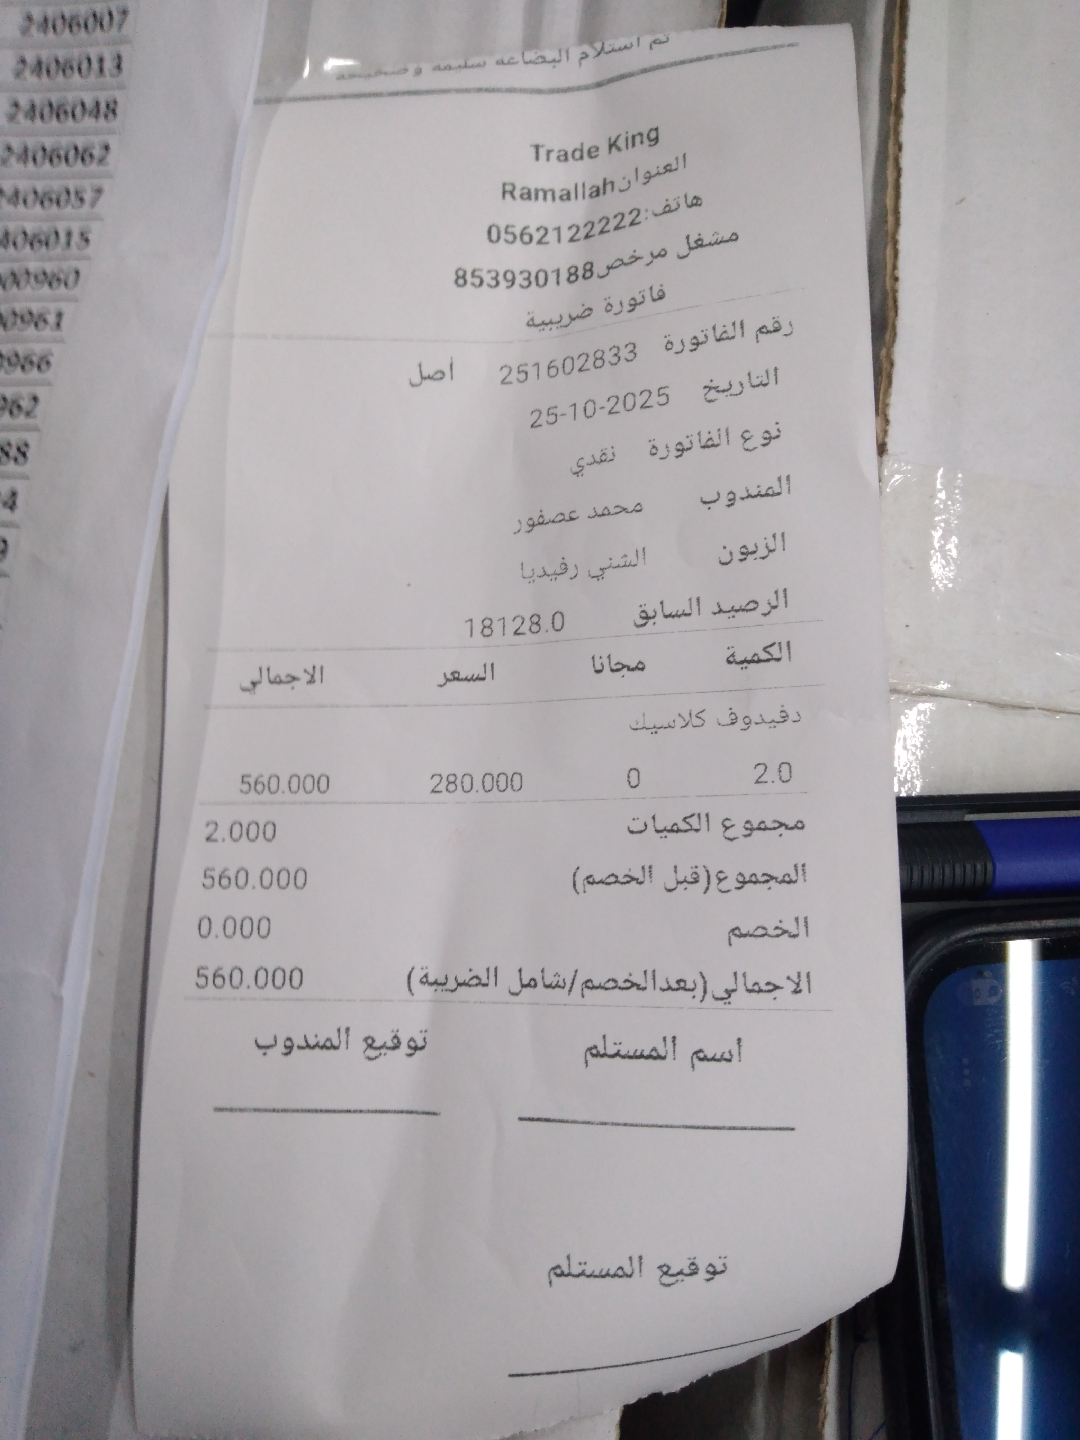 2406007
2406013
2406048
2406062
2406057
2406015
00960
00961
0966
962
88
4
9
تم استلام البضاعه سليمه وصحيحه
Trade King
العنوانRamallah
هاتف:0562122222
مشغل مرخص853930188
فاتورة ضريبية
رقم الفاتورة 251602833 أصل
التاريخ 25-10-2025
نوع الفاتورة نقدي
المندوب محمد عصفور
الزبون الشني رفيديا
الرصيد السابق 18128.0
الكمية مجانا السعر الاجمالي
دفيدوف كلاسيك
2.0 0 280.000 560.000
مجموع الكميات 2.000
المجموع(قبل الخصم) 560.000
الخصم 0.000
الاجمالي(بعدالخصم/شامل الضريبة) 560.000
أسم المستلم توقيع المندوب
توقيع المستلم